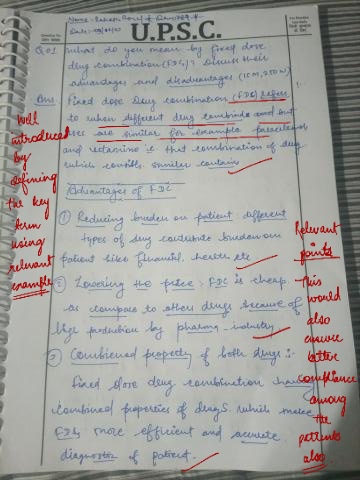 Name:-
Date:-
U.P.S.C.
Q.01 What do you mean by fixed dose
drug combination (FDCs)? Discuss their
advantages and disadvantages (10M, 250W)
Ans: Fixed dose Drug combination (FDC) refers
to when different drug combined and but
uses are similar for example paracetamol
and is that combination of drug
which consists similar contain
Well
introduced
by
defining
the key
term
using
relevant
example
Advantages of FDC
① Reducing burden on patient different
types of drug contribute burden on
patient like financial, health etc
Relevant
points
② Lowering the price:- FDC is cheap
as compare to other drugs because of
huge production by pharma industry
③ Combined property of both drug :-
fixed dose drug combination
combined properties of drugs which make
FDC more efficient and accurate
of patient.
This
would
also
ensure
better
compliance
among
the
patients
also